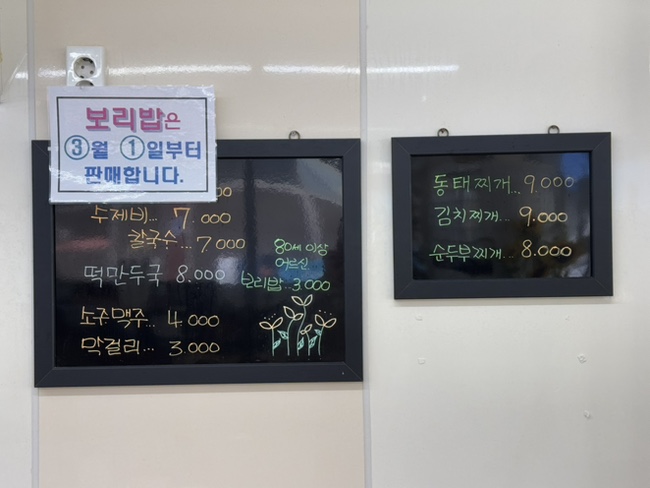 보리밥은
③월 ①일부터
판매합니다.
수제비... 7.000
칼국수... 7.000
떡만두국 8.000
소주맥주... 4.000
막걸리... 3.000
80세 이상
어르신
보리밥.. 3.000
동태찌개.. 9.000
김치찌개... 9.000
순두부찌개... 8.000